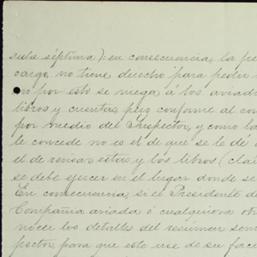 sula séptima); en consecuencia, la pe
cargo no tiene derecho para pedir
en por esto se niega á los aviado
libros y cuentas, pues conforme al con
por medio del Inspector, y como la
le concede no es el de que se le dé
el de revisar éstos y los libros (clau
se debe ejercer en el lugar donde se
En consecuencia, si el Presidente de
Compañia aviada ó cualquiera otr
nocer los detalles del resúmen sem
pector para que éste use de su facu